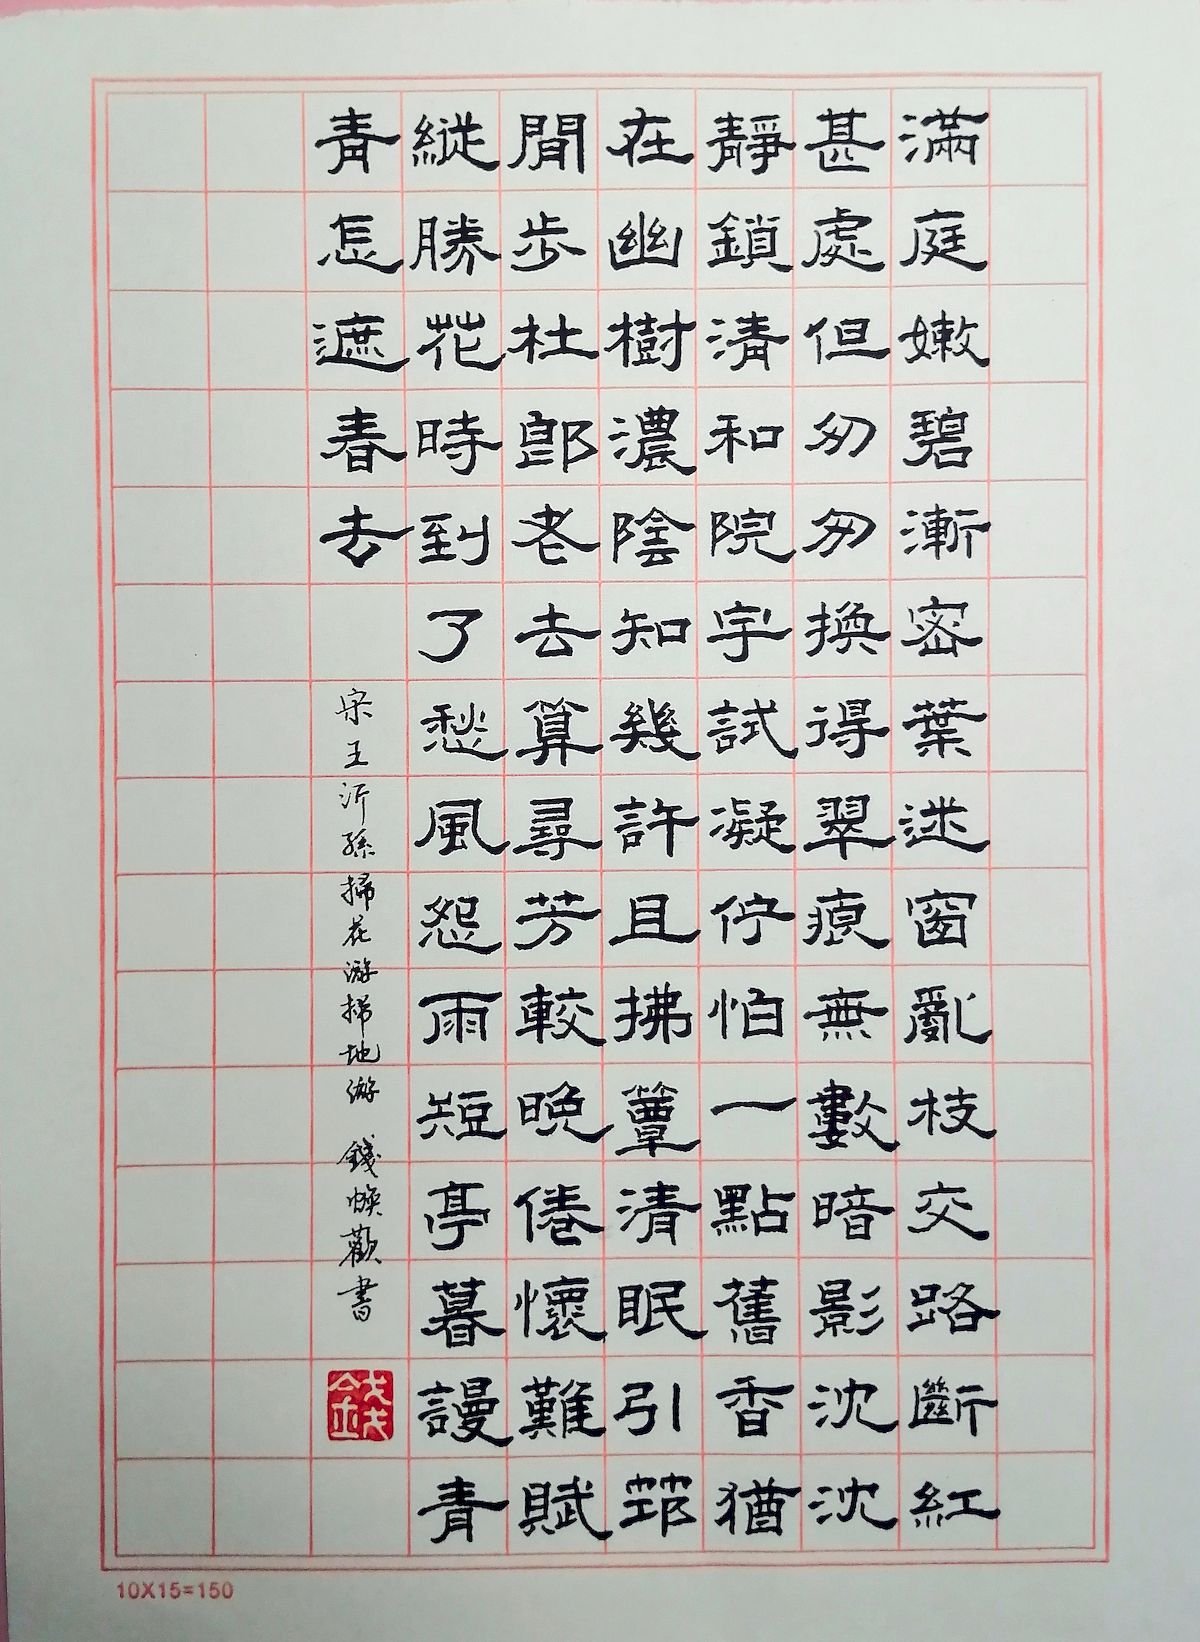 滿庭嫩碧漸密葉迷窗亂枝交路斷紅
甚處但匆匆換得翠痕無數暗影沈沈
靜鎖清和院宇試凝佇怕一點舊香猶
在幽樹濃陰知幾許且拂簟清眠引筇
閒步杜郎老去算尋芳較晚倦懷難賦
縱勝花時到了愁風怨雨短亭暮謾青
青怎遮春去
宋王沂孫掃花游掃地游 錢懷歡書
錢
10X15=150